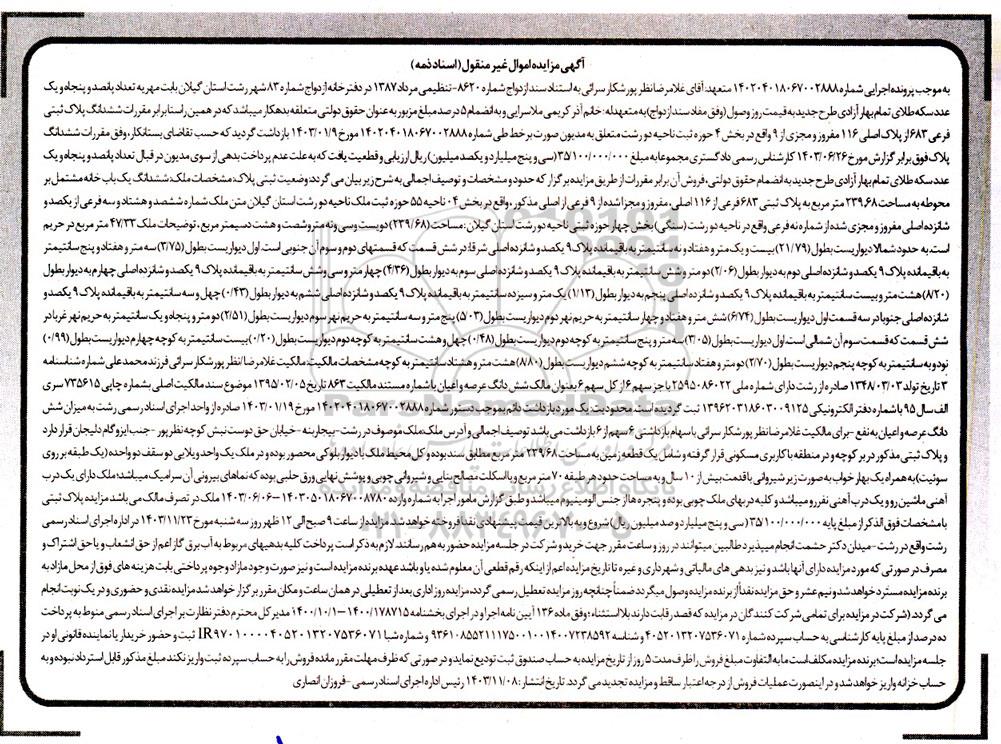 آگهی مزایده اموال غیر منقول (اسناد ذمه)
به موجب پرونده اجرایی شماره ۱۴۰۲۰۴۰۱۸۰۶۷۰۰۲۸۸۸ متعهد: آقای غلامرضا نظر پور شکار سرائی به استناد سند ازدواج شماره ۸۶۲۰-تنظیمی مرداد ۱۳۸۷ در دفترخانه ازدواج شماره ۸۳ شهر رشت استان گیلان بابت مهریه تعداد پانصد و پنجاه و یک
عدد سکه طلای تمام بهار آزادی طرح جدید به قیمت روز وصول (وفق مفاد سند ازدواج) به متعهدله: خانم آذر کریمی ملاسرایی و به انضمام ۵ درصد مبلغ مزبور به عنوان حقوق دولتی متعلقه بدهکار میباشد که در همین راستا برابر مقررات ششدانگ پلاک ثبتی
فرعی ۶۸۳ از پلاک اصلی ۱۱۶ مفروز و مجزی از ۹ واقع در بخش ۴ حوزه ثبت ناحیه دو رشت متعلق به مدیون صورت بر خط طی شماره ۱۴۰۲۰۴۰۱۸۰۶۷۰۰۲۸۸۸ مورخ ۱۴۰۳/۰۱/۹ بازداشت گردید که حسب تقاضای بستانکار، وفق مقررات ششدانگ
پلاک فوق برابر گزارش مورخ ۱۴۰۳/۰۶/۲۶ کارشناس رسمی دادگستری مجموعا به مبلغ ۳۵/۱۰۰/۰۰۰/۰۰۰ (سی و پنج میلیارد و یکصد میلیون) ریال ارزیابی و قطعیت یافت که به علت عدم پرداخت بدهی از سوی مدیون در قبال تعداد پانصد و پنجاه و یک
عدد سکه طلای تمام بهار آزادی طرح جدید به انضمام حقوق دولتی، فروش آن برابر مقررات از طریق مزایده برگزار که حدود و مشخصات و توصیف اجمالی به شرح زیر بیان می گردد: وضعیت ثبتی پلاک: مشخصات ملک: ششدانگ یک باب خانه مشتمل بر
محوطه به مساحت ۲۳۹.۶۸ متر مربع به پلاک ثبتی ۶۸۳ فرعی از ۱۱۶ اصلی، مفروز و مجزا شده از ۹ فرعی از اصلی مذکور، واقع در بخش ۰۴ ناحیه ۵۵ حوزه ثبت ملک ناحیه دو رشت استان گیلان متن ملک شماره ششصد و هشتاد و سه فرعی از یکصد و
شانزده اصلی مفروز و مجزی شده از شماره نه فرعی واقع در ناحیه دو رشت (سنگی) بخش چهار حوزه ثبتی ناحیه دو رشت استان گیلان: مساحت: (۲۳۹/۶۸) دویست و سی و نه متر و شصت و هشت دسیمتر مربع، توضیحات ملک ۴۷/۳۳ متر مربع در حریم
است. به حدود: شمالا: دیواریست بطول (۲۱/۷۹) بیست و یک متر و هفتاد و نه سانتیمتر به باقیمانده پلاک ۹ یکصد و شانزده اصلی شرقا: در شش قسمت که قسمتهای دوم و سوم آن جنوبی است، اول دیواریست بطول (۳/۷۵) سه متر و هفتاد و پنج سانتیمتر
به باقیمانده پلاک ۹ یکصد و شانزده اصلی دوم به دیوار بطول (۲/۰۶) دو متر و شش سانتیمتر به باقیمانده پلاک ۹ یکصد و شانزده اصلی سوم به دیوار بطول (۴/۳۶) چهار متر و سی و شش سانتیمتر به باقیمانده پلاک ۹ یکصد و شانزده اصلی چهارم به دیوار بطول
(۸/۲۰) هشت متر و بیست سانتیمتر به باقیمانده پلاک ۹ یکصد و شانزده اصلی پنجم به دیوار بطول (۱/۱۳) یک متر و سیزده سانتیمتر به باقیمانده پلاک ۹ یکصد و شانزده اصلی ششم به دیوار بطول (۰/۴۳) چهل و سه سانتیمتر به باقیمانده پلاک ۹ یکصد و
شانزده اصلی جنوبا: در سه قسمت اول دیواریست بطول (۶/۷۴) شش متر و هفتاد و چهار سانتیمتر به حریم نهر دوم دیواریست بطول (۵.۰۳) پنج متر و سه سانتیمتر به حریم نهر سوم دیواریست بطول (۲/۵۱) دو متر و پنجاه و یک سانتیمتر به حریم نهر غربا: در
شش قسمت که قسمت سوم آن شمالی است، اول دیواریست بطول (۳/۰۵) سه متر و پنج سانتیمتر به کوچه دوم دیواریست بطول (۰/۴۸) چهل و هشت سانتیمتر به کوچه دوم دیواریست بطول (۰/۲۰) بیست سانتیمتر به کوچه چهارم دیواریست بطول (۰/۹۹)
نود و نه سانتیمتر به کوچه پنجم دیواریست بطول (۲/۷۰) دو متر و هفتاد سانتیمتر به کوچه ششم دیواریست بطول (۸/۸۰) هشت متر و هشتاد سانتیمتر به کوچه مشخصات مالکیت: مالکیت غلامرضا نظر پور شکار سرائی فرزند محمد علی شماره شناسنامه
۳ تاریخ تولد ۱۳۴۸/۰۳/۰۳ صادره از رشت دارای شماره ملی ۲۵۹۵۰۸۶۰۲۲ با جز سهم ۶ از کل سهم ۶ بعنوان مالک شش دانگ عرصه و اعیان با شماره مستند مالکیت ۸۶۳ تاریخ ۱۳۹۵/۰۲/۰۵ موضوع سند مالکیت اصلی بشماره چاپی ۷۳۵۶۱۵ سری
الف سال ۹۵ با شماره دفتر الکترونیکی ۱۳۹۶۲۰۳۱۸۶۰۳۰۰۹۱۲۵ ثبت گردیده است. محدودیت: یک مورد بازداشت دائم بموجب دستور شماره ۱۴۰۲۰۴۰۱۸۰۶۷۰۰۲۸۸۸ مورخ ۱۴۰۳/۰۱/۱۹ صادره از واحد اجرای اسناد رسمی رشت به میزان شش
دانگ عرصه و اعیان به نفع - برای مالکیت غلامرضا نظر پور شکار سرائی با سهام بازداشتی ۶ سهم از ۶ بازداشت می باشد توصیف اجمالی و آدرس ملک: ملک موصوف در رشت - بیجاربنه - خیابان حق دوست نبش کوچه نظرپور - جنب ایزوگام دلیجان قرار دارد
و پلاک ثبتی مذکور در بر کوچه و در منطقه با کاربری مسکونی قرار گرفته و شامل یک قطعه زمین به مساحت ۲۳۹.۶۸ متر مربع مطابق سند بوده و کل محیط ملک با دیوار بلوکی محصور بوده و در ملک یک واحد ویلایی دو سقف دو واحده (یک طبقه بر روی
سوئیت) به همراه یک بهار خواب به صورت زیر شیروانی با قدمت بیش از ۱۰ سال و به مساحت حدود هر طبقه ۷۰ متر مربع و با اسکلت مصالح بنایی و شیروانی چوبی و پوشش نهایی ورق حلبی بوده که نماهای بیرونی آن سرامیک میباشد؛ ملک دارای یک درب
آهنی ماشین رو و یک درب آهنی نفر رو میباشد و کلیه دربهای ملک چوبی بوده و پنجره ها از جنس آلومینیوم میباشد و طبق گزارش مامور اجرا به شماره وارده ۱۴۰۳۰۵۰۱۸۰۶۷۰۰۸۷۸۰ - ۱۴۰۳/۰۶/۰۶ ملک در تصرف مالک می باشد مزایده پلاک ثبتی
با مشخصات فوق الذکر از مبلغ پایه ۳۵/۱۰۰/۰۰۰/۰۰۰ (سی و پنج میلیارد و صد میلیون ریال) شروع و به بالاترین قیمت پیشنهادی نقدا فروخته خواهد شد. مزایده از ساعت ۹ صبح الی ۱۲ ظهر روز سه شنبه مورخ ۱۴۰۳/۱۱/۲۳ در اداره اجرای اسناد رسمی
رشت واقع در رشت - میدان دکتر حشمت انجام میپذیرد طالبین میتوانند در روز و ساعت مقرر جهت خرید و شرکت در جلسه مزایده حضور به هم رسانند. لازم به ذکر است پرداخت کلیه بدهیهای مربوط به آب برق گاز اعم از حق انشعاب و یا حق اشتراک و
مصرف در صورتی که مورد مزایده دارای آنها باشد و نیز بدهی های مالیاتی و شهرداری و غیره تا تاریخ مزایده اعم از اینکه رقم قطعی آن معلوم شده یا و باشد عهده برنده مزایده است و نیز صورت وجود مازاد وجوه پرداختی بابت هزینه های فوق از محل مازاد به
برنده مزایده مسترد خواهد شد و نیم عشر و حق مزایده نقدا از برنده مزایده وصول میگردد ضمنا چنانچه روز مزایده تعطیل رسمی گردد، مزایده روز اداری بعد از تعطیلی در همان ساعت و مکان مقرر برگزار خواهد شد مزایده نقدی و حضوری و در یک نوبت انجام
می گردد. (شرکت در مزایده برای تمامی شرکت کنندگان در مزایده که قصد رقابت دارند بلا استثناء وفق ماده ۱۳۶ آیین نامه اجرا و در اجرای بخشنامه ۱۴۰۰/۱۷۸۷۱۵-۱۴۰۰/۱۰/۱ مدیر کل محترم دفتر نظارت بر اجرای اسناد رسمی منوط به پرداخت
ده درصد از مبلغ پایه کارشناسی به حساب سپرده شماره ۴۰۵۲۰۱۳۲۰۷۵۳۶۰۷۱ و شناسه ۹۳۶۱۰۸۵۵۲۱۱۱۷۵۰۰۱۰۰۱۴۰۰۷۲۳۸۵۹۲ و شماره شبا IR۹۷۰۱۰۰۰۰۴۰۵۲۰۱۳۲۰۷۵۳۶۰۷۱ ثبت و حضور خریدار یا نماینده قانونی او در
جلسه مزایده است؛ برنده مزایده مکلف است مابه التفاوت مبلغ فروش را ظرف مدت ۵ روز از تاریخ مزایده به حساب صندوق ثبت تودیع نماید و در صورتی که ظرف مهلت مقرر مانده فروش را به حساب سپرده ثبت واریز نکند مبلغ مذکور قابل استرداد نبوده و به
حساب خزانه واریز خواهد شد و در اینصورت عملیات فروش از درجه اعتبار ساقط و مزایده تجدید می گردد. تاریخ انتشار: ۱۴۰۳/۱۱/۰۸ رئیس اداره اجرای اسناد رسمی - فروزان انصاری